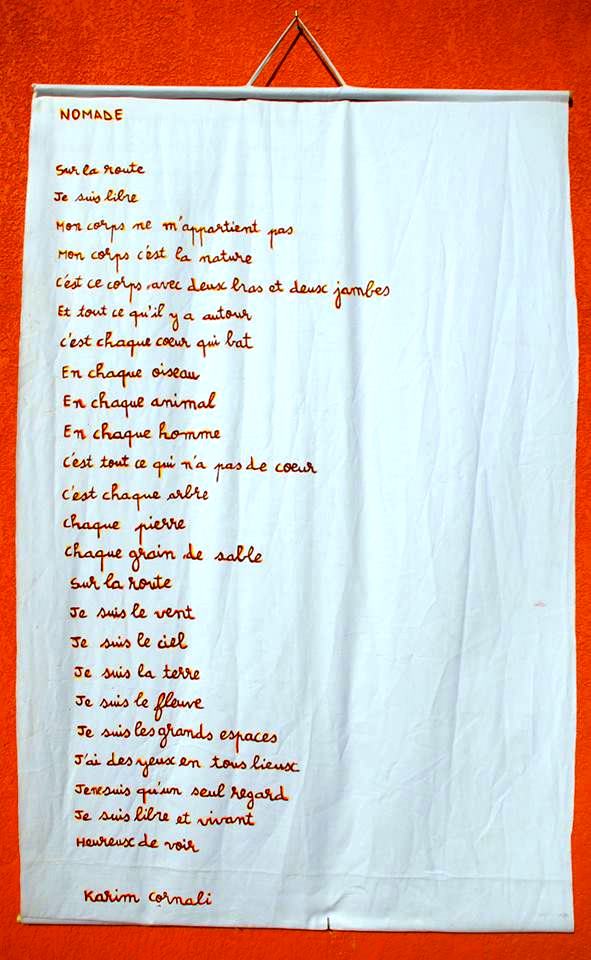 NOMADE
Sur la route
Je suis libre
Mon corps ne m'appartient pas
Mon corps c'est la nature
C'est ce corps avec deux bras et deux jambes
Et tout ce qu'il y a autour
C'est chaque coeur qui bat
En chaque oiseau
En chaque animal
En chaque homme
C'est tout ce qui n'a pas de coeur
C'est chaque arbre
Chaque pierre
Chaque grain de sable
Sur la route
Je suis le vent
Je suis le ciel
Je suis la terre
Je suis le fleuve
Je suis les grands espaces
J'ai des yeux en tous lieux
Je ne suis qu'un seul regard
Je suis libre et vivant
Heureux de voir
Karim Cornali